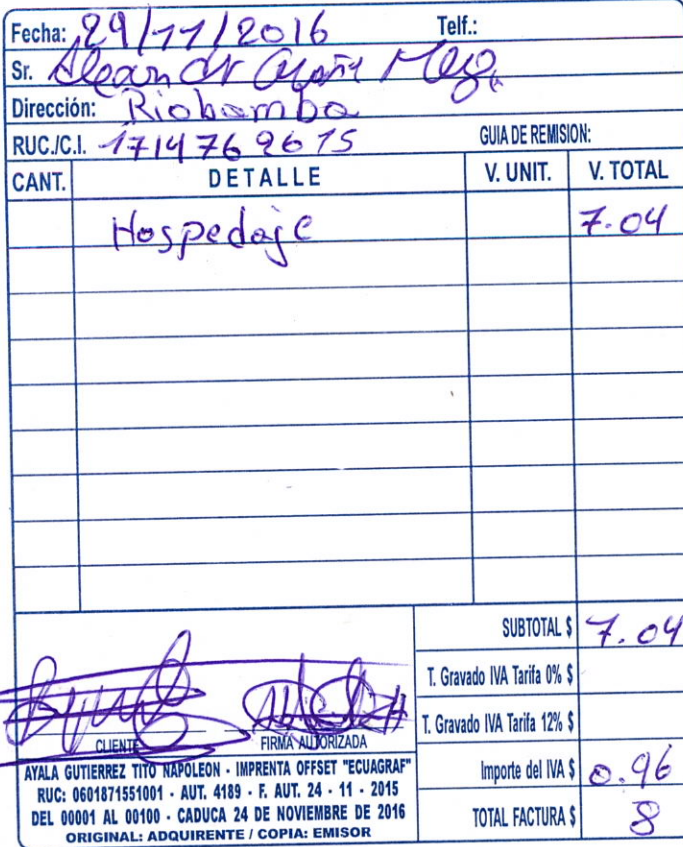 Fecha: 29/11/2016 Telf.:
Sr.
Dirección: Riobamba
RUC./C.I. 1714769615 GUIA DE REMISION:
CANT. DETALLE V. UNIT. V. TOTAL
Hospedaje 7.04
SUBTOTAL $ 7.04
T. Gravado IVA Tarifa 0% $
T. Gravado IVA Tarifa 12% $
CLIENTE FIRMA AUTORIZADA
Importe del IVA $ 0.96
TOTAL FACTURA $ 8
AYALA GUTIERREZ TITO NAPOLEON - IMPRENTA OFFSET "ECUAGRAF"
RUC: 0601871551001 - AUT. 4189 - F. AUT. 24 - 11 - 2015
DEL 00001 AL 00100 - CADUCA 24 DE NOVIEMBRE DE 2016
ORIGINAL: ADQUIRENTE / COPIA: EMISOR